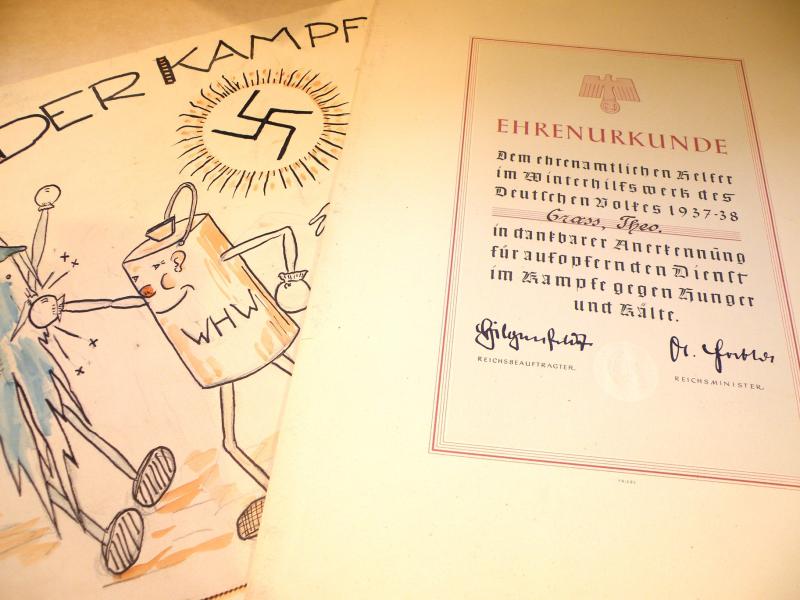 DER KAMPF
WHW
EHRENURKUNDE
Dem ehrenamtlichen Helfer
im Winterhilfswerk des
Deutschen Volkes 1937-38
Grass, Theo.
in dankbarer Anerkennung
für aufopfernden Dienst
im Kampfe gegen Hunger
und Kälte.
Hilgenfeldt
REICHSBEAUFTRAGTER.
REICHSMINISTER.